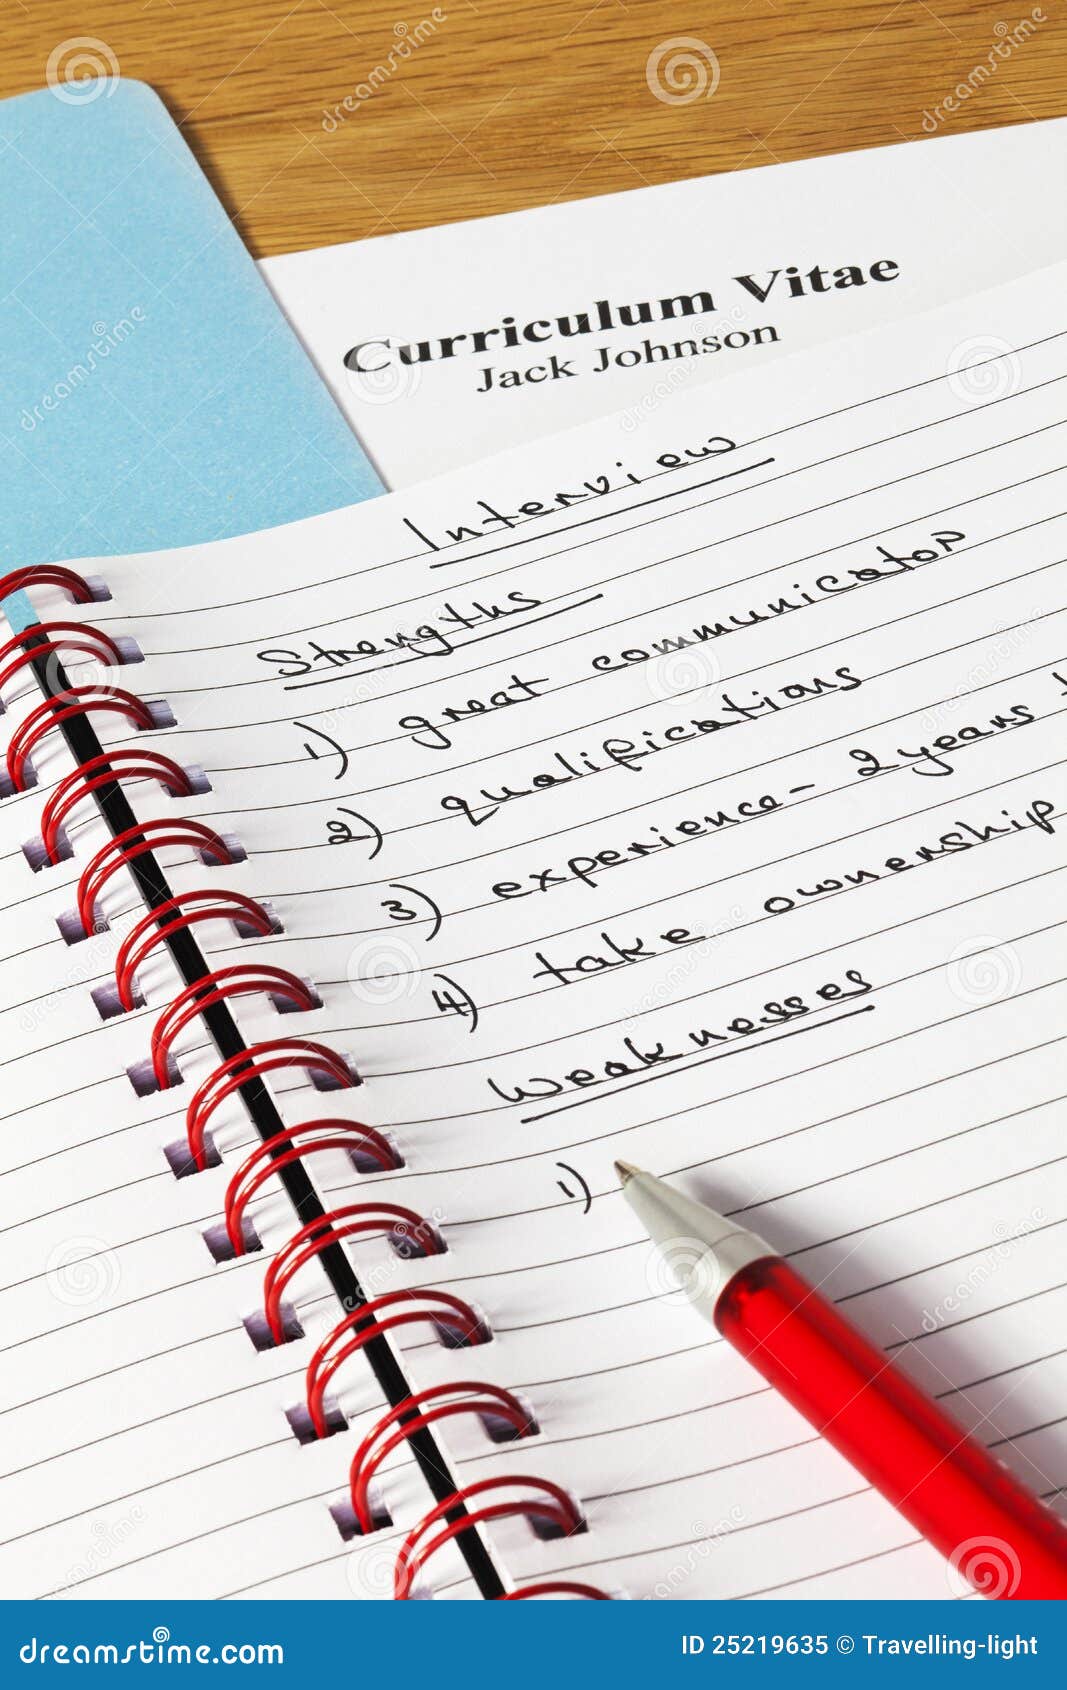 Curriculum Vitae
Jack Johnson
Interview
Strengths
1) great communicator
2) qualifications
3) experience - 2 years
4) take ownership
Weaknesses
1)
dreamstime.com
ID 25219635 © Travelling-light